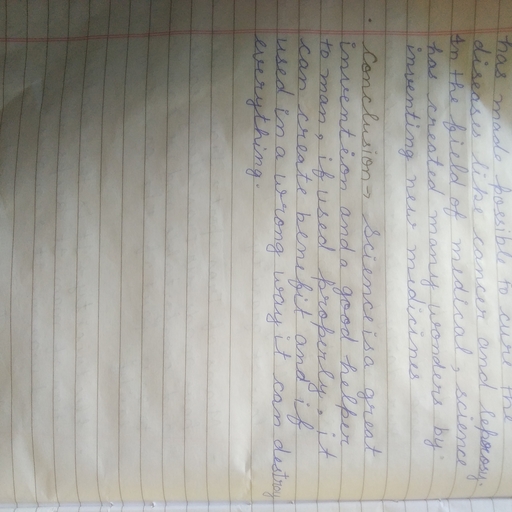 has made possible to cure the
diseases like cancer and leporosy.
In the field of medical, science
has created many wonders by
inventing new medicines
Conclusion → Science is a great
invention and a good helper
to man, if used properly, it
can create benefit and if
used in a wrong way it can destroy
everything.